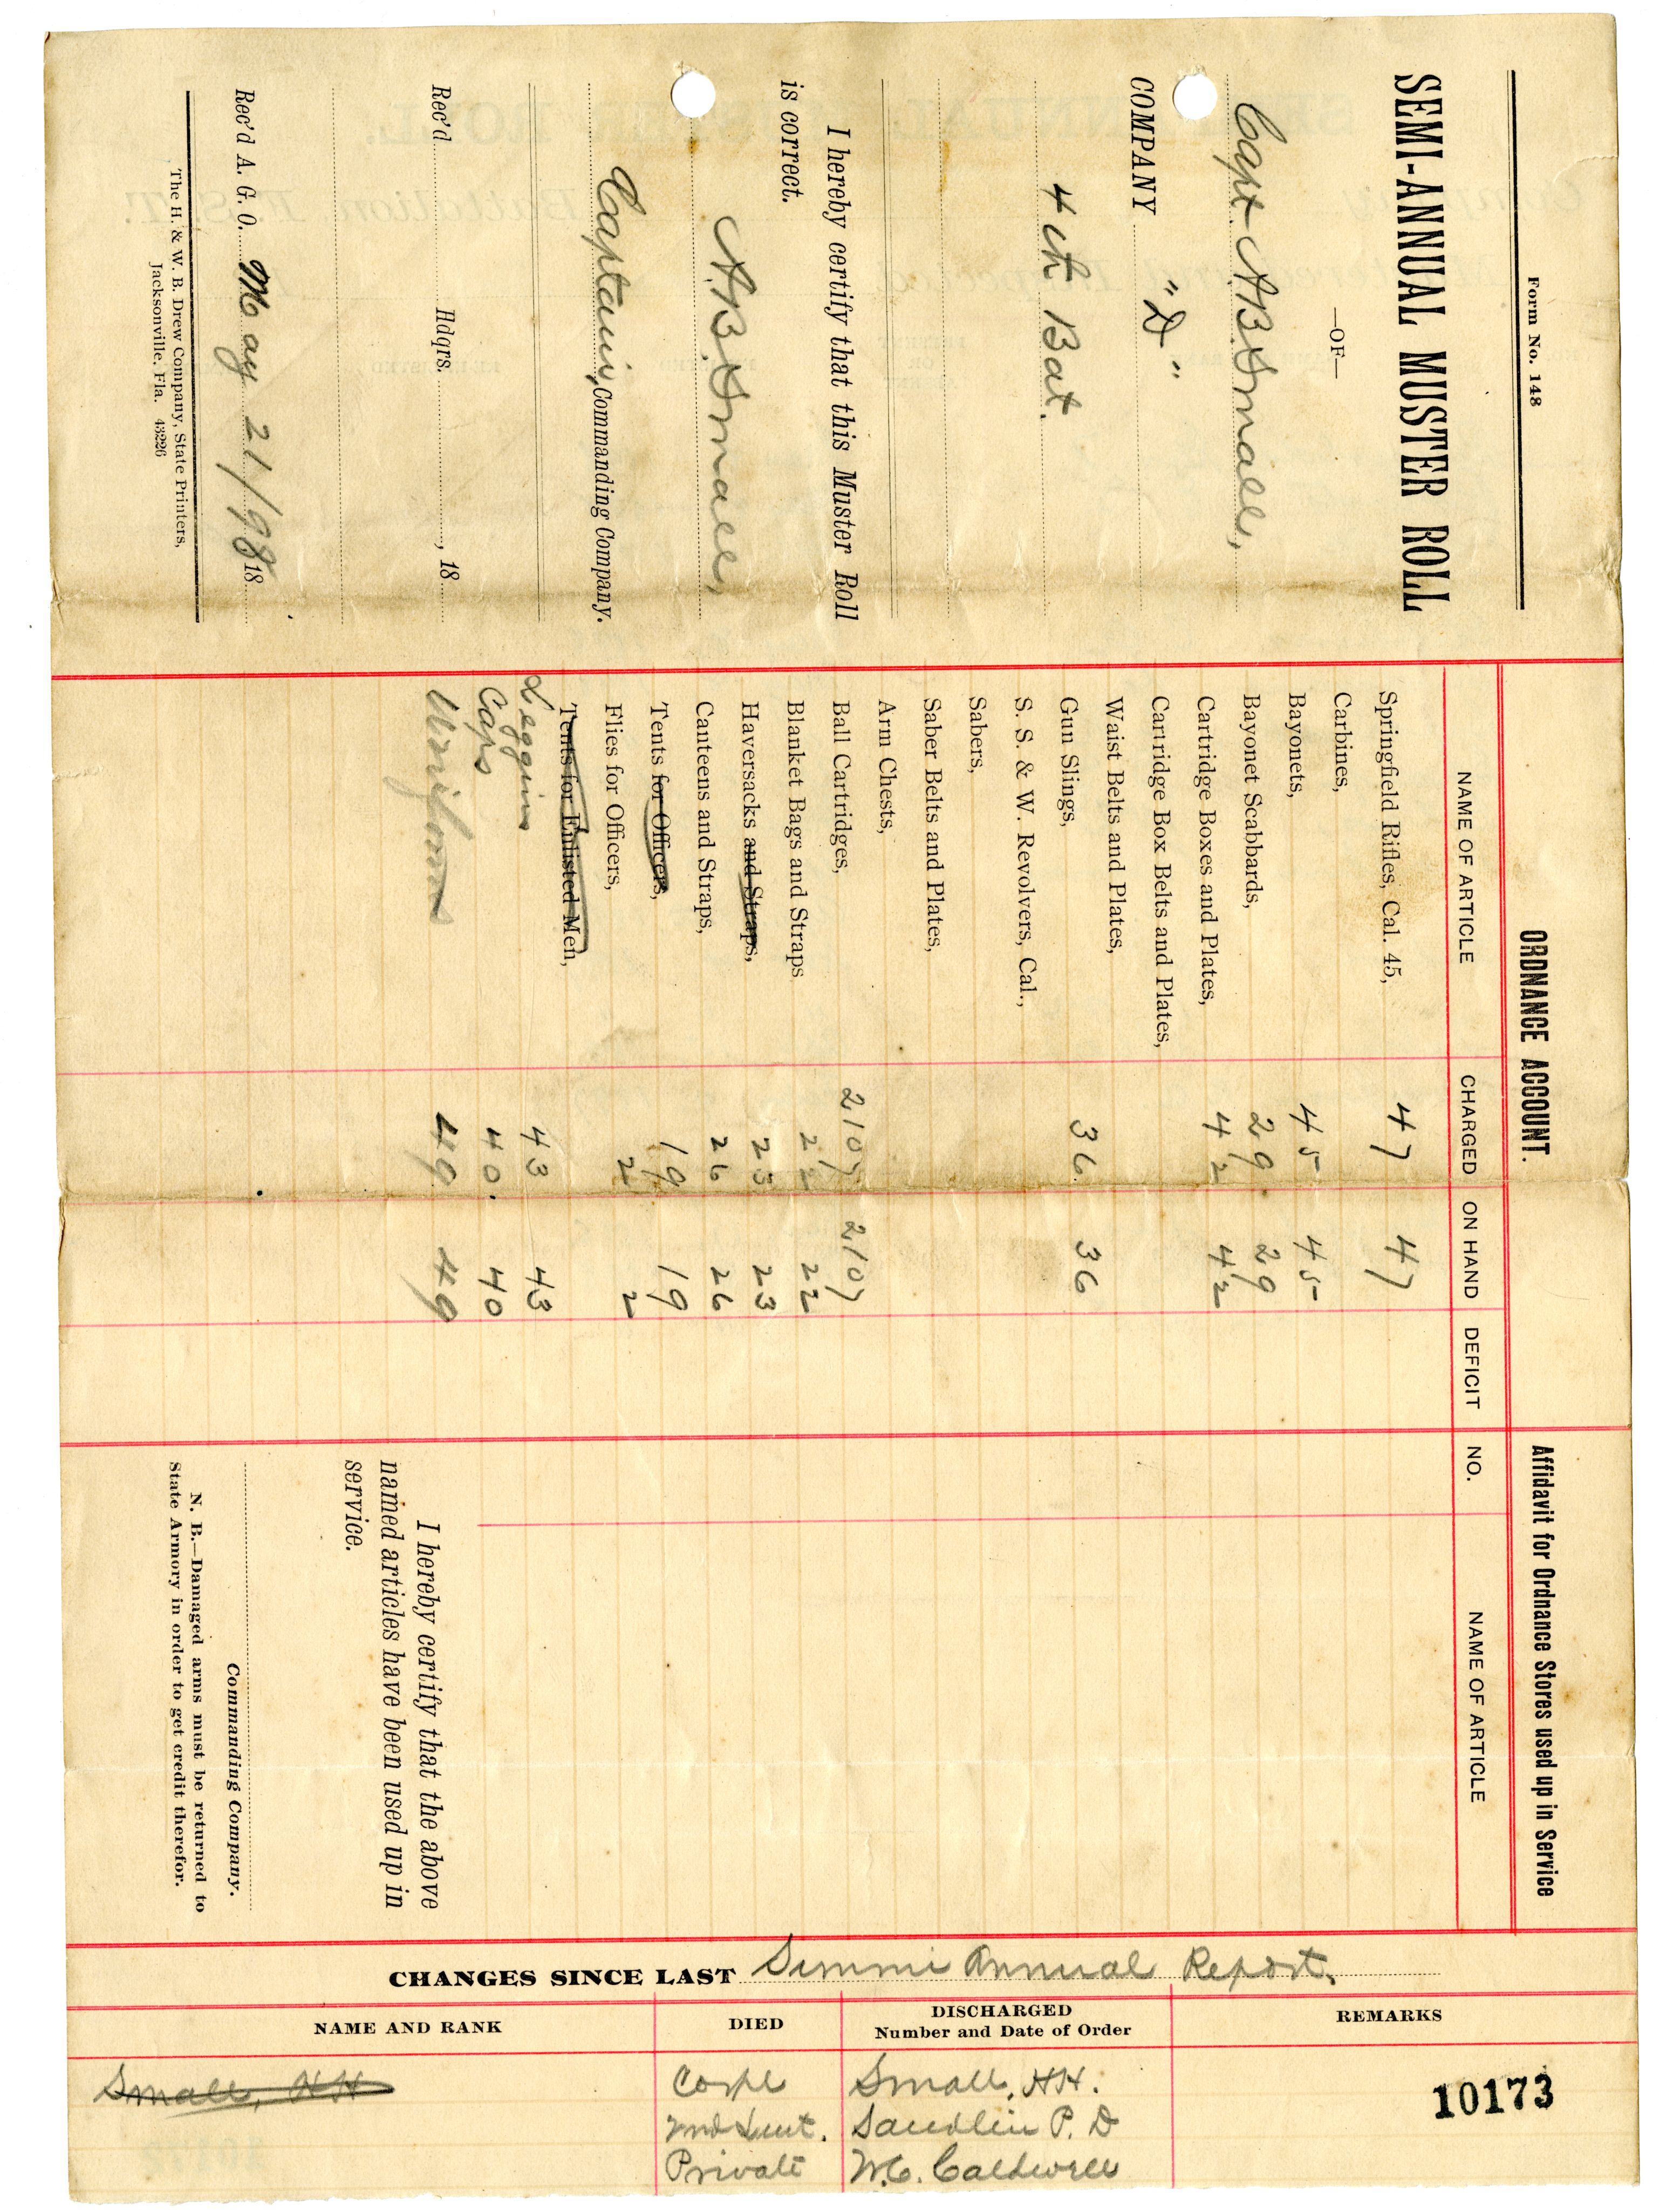 Form No. 148
SEMI-ANNUAL MUSTER ROLL
—OF—
Capt A.B. Small,
COMPANY "D"
4th Bat.
I hereby certify that this Muster Roll
is correct.
A.B. Small,
Captain, Commanding Company.
Rec'd Hdqrs. , 18
Rec'd A. G. O. May 21/98 18
The H. & W. B. Drew Company, State Printers,
Jacksonville, Fla. 43226
ORDNANCE ACCOUNT.
NAME OF ARTICLE CHARGED ON HAND DEFICIT
Springfield Rifles, Cal. 45, 47 47
Carbines,
Bayonets, 45 45
Bayonet Scabbards, 29 29
Cartridge Boxes and Plates, 42 42
Cartridge Box Belts and Plates,
Waist Belts and Plates,
Gun Slings, 36 36
S. S. & W. Revolvers, Cal.,
Sabers,
Saber Belts and Plates,
Arm Chests,
Ball Cartridges, 2107 2107
Blanket Bags and Straps 22 22
Haversacks and Straps, 23 23
Canteens and Straps, 26 26
Tents for Officers, 19 19
Flies for Officers, 2 2
Tents for Enlisted Men,
Leggins 43 43
Caps 40. 40
Uniforms 49 49
Affidavit for Ordnance Stores used up in Service
NO. NAME OF ARTICLE
I hereby certify that the above
named articles have been used up in
service.
Commanding Company.
N. B.—Damaged arms must be returned to
State Armory in order to get credit therefor.
CHANGES SINCE LAST Simmi Annual Report.
NAME AND RANK DIED DISCHARGED REMARKS
Number and Date of Order
Small, HH Corpl Small, HH.
2nd Lieut. Saudlin P. D
Private W.C. Caldwell
10173